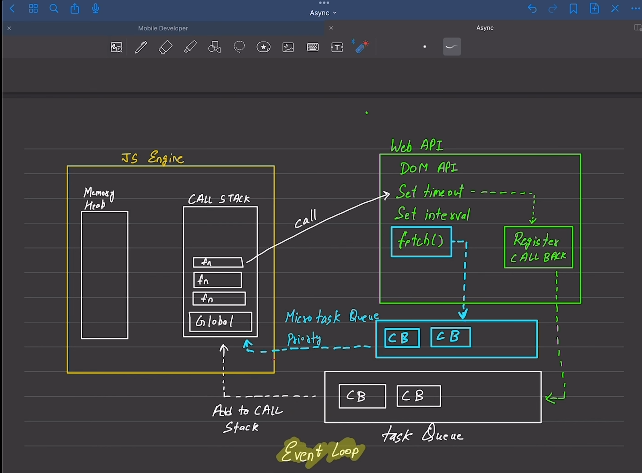 Async
Mobile Developer
Async
JS Engine
Memory
Heap
CALL STACK
fn
fn
fn
Global
call
Web API
DOM API
Set timeout
Set interval
fetch()
Register
CALL BACK
Microtask Queue
Priority
CB
CB
CB
CB
Add to CALL
Stack
task Queue
Event Loop